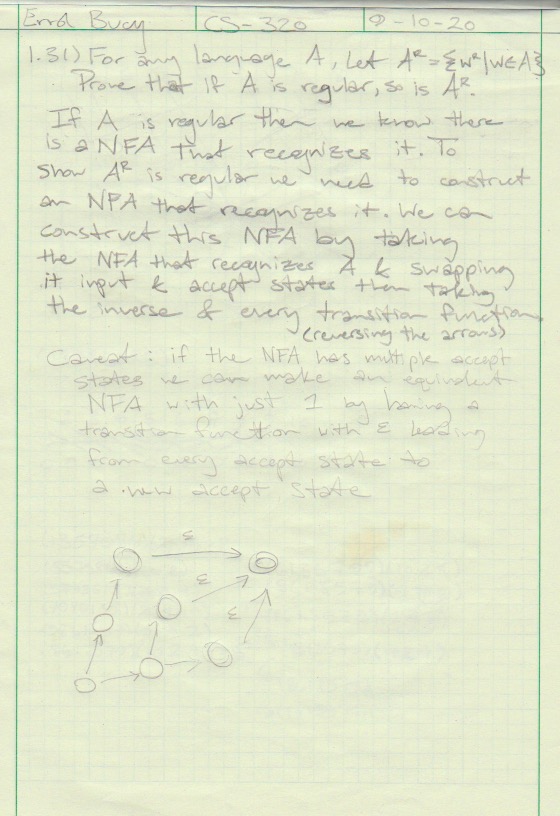 Errol Buoy CS-320 9-10-20
1.31) For any language A, Let Aᴿ = {wᴿ | w ∈ A}
Prove that if A is regular, so is Aᴿ.
If A is regular then we know there
is a NFA that recognizes it. To
show Aᴿ is regular we need to construct
an NFA that recognizes it. We can
construct this NFA by taking
the NFA that recognizes A & swapping
it input & accept states then taking
the inverse of every transition function.
(reversing the arrows)
Caveat: if the NFA has multiple accept
states we can make an equivalent
NFA with just 1 by having a
transition function with ε leading
from every accept state to
a new accept state
ε
ε
ε